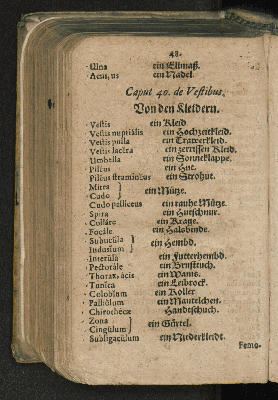 48.
Ulna ein Ellmaß.
Acus, us ein Nadel.
Caput 40. de Vestibus.
Von den Kleidern.
Vestis ein Kleid
Vestis nuptialis ein Hochzeitkleid.
Vestis pulla ein Trawerkleid.
Vestis lacera ein zerrissen Kleid.
Umbella ein Sonneklappe.
Pileus ein Hut.
Pileus stramineus ein Strohut.
Mitra }
Cudo } ein Mütze.
Cudo pelliceus ein rauhe Mütze.
Spira ein Hutschnur.
Collare ein Krage.
Focale ein Halsbinde.
Subucula }
Indusium } ein Hembd.
Interula ein Futterhembd.
Pectorale ein Brusttuch.
Thorax, acis ein Wams.
Tunica ein Leibrock.
Colobium ein Koller
Palliolum ein Mantelchen.
Chirothecæ Handtschuch.
Zona }
Cingulum } ein Gürtel.
Subligaculum ein Niederkleidt.
Femo-